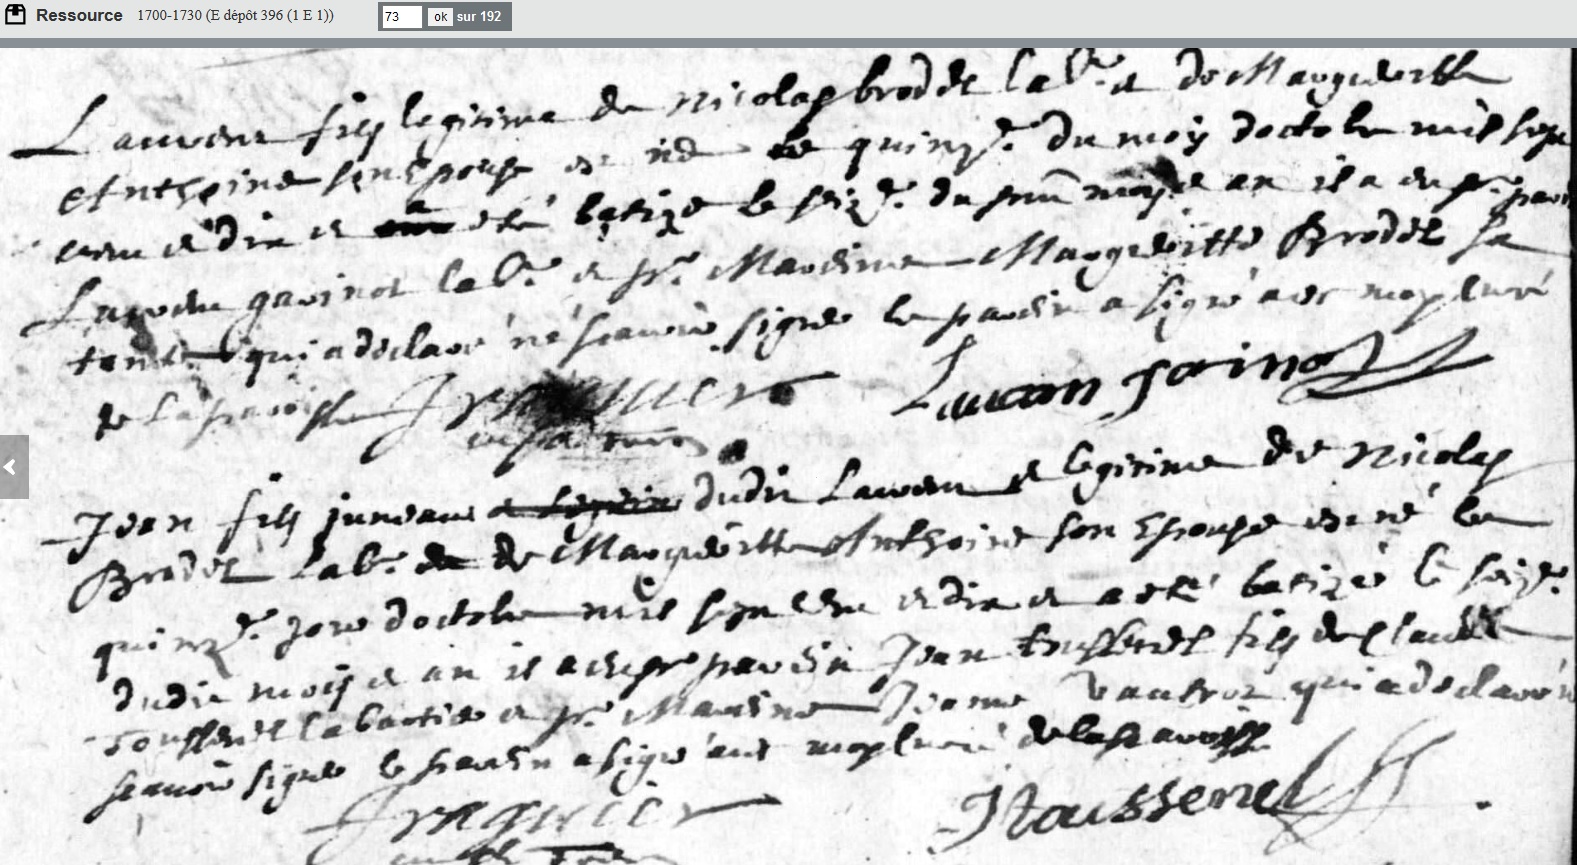 Ressource 1700-1730 (E dépôt 396 (1 E 1)) 73 ok sur 192
Laurent fils legitime de Nicolas brodet lab.r et de Margueritte
Anthoine son Epouse est né le quinz.e du moy doctobre mil sept
cent et dix et a eté batizé le seiz.e du moy et an il a eu pr. parin
Laurent lab.r et pr. Mareine Margueritte Brodet sa
tante qui a declaré ne scavoir signer le parein a signé avec moy curé
de la paroisse
Jean fils jumeau dudit Laurent et legitime de Nicolas
Brodet Lab.r et de Marguéritte Anthoine son Epouse est né le
quinz.e jour doctobre mil sept cent et dix et a eté batizé le seiz.e
dudit mois et an il a eu pr parein Jean fils de Claude
et pr. Mareine Jeanne Vautrot qui a declaré ne
scavoir signer le parein a signé avec moy curé de la paroisse